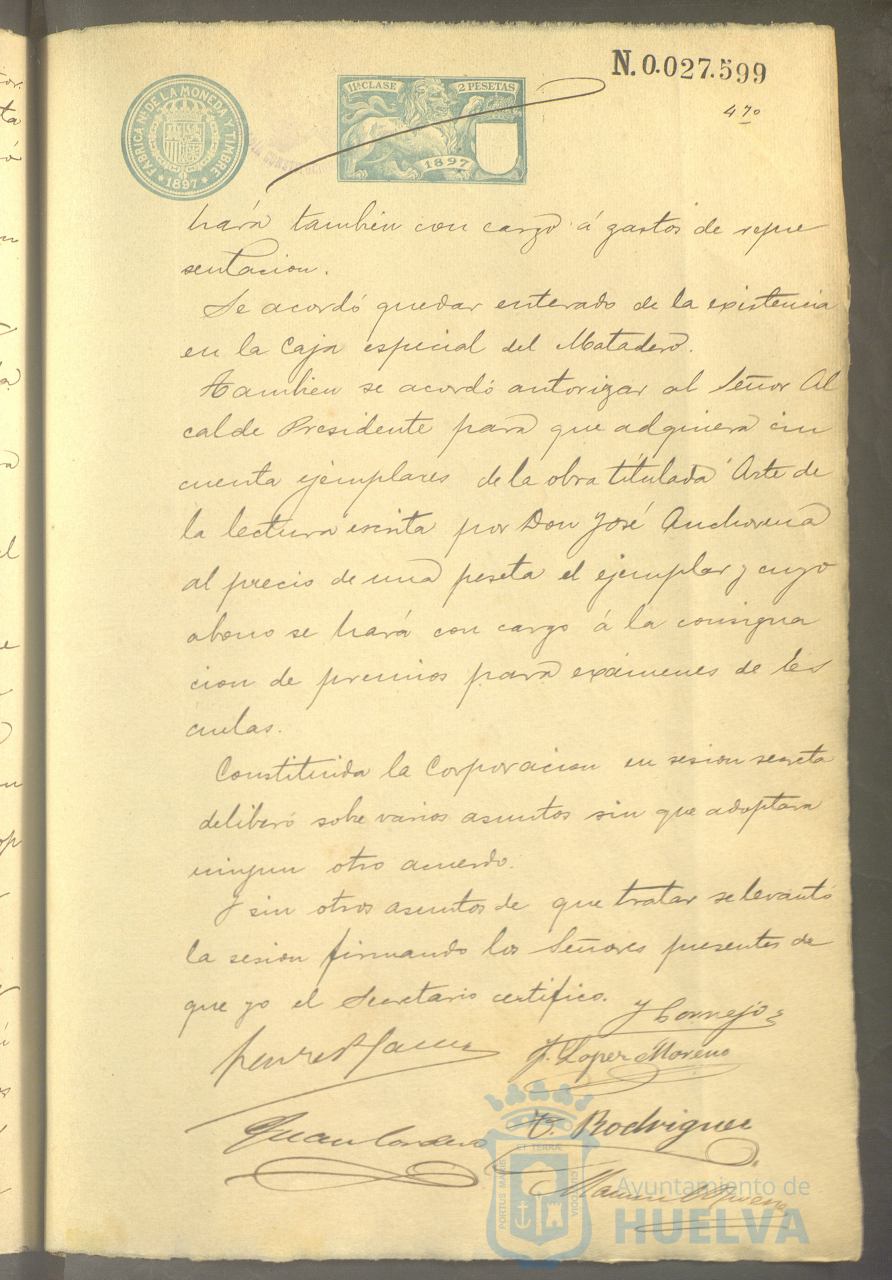 N. 0.027.599
11ª CLASE 2 PESETAS
1897
FABRICA Nˡ. DE LA MONEDA Y TIMBRE
* 1897 *
47º
hará tambien con cargo á gastos de repre
sentacion.
Se acordó quedar enterado de la existencia
en la Caja especial del Matadero.
Tambien se acordó autorizar al Señor Al
calde Presidente para que adquiera cin
cuenta ejemplares de la obra titulada "Arte de
la lectura escrita por Don José Anchorena
al precio de una peseta el ejemplar y cuyo
abono se hará con cargo á la consigna
cion de premios para exámenes de Es
cuelas.
Constituida la Corporacion en sesion secreta
deliberó sobre varios asuntos sin que adoptara
ningun otro acuerdo.
Y sin otros asuntos de que tratar se levantó
la sesion firmando los Señores presentes de
que yo el Secretario certifico.
Y Cornejo
J. Lopez Moreno
Juan Cordero
Rodriguez
PORTUS MARIS ET TERRÆ CUSTODIA
Ayuntamiento de
HUELVA